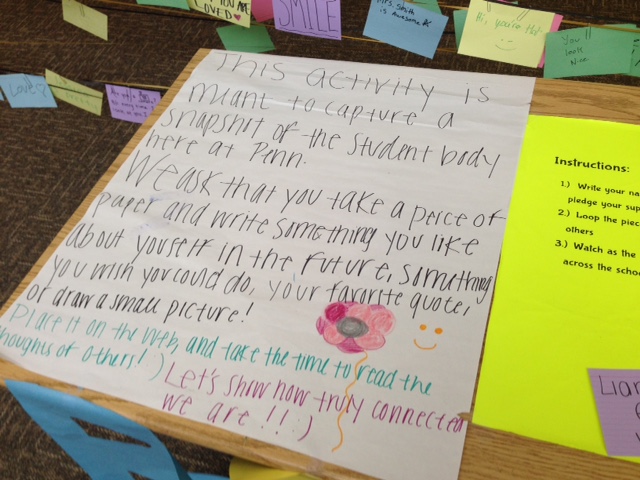 YOU ARE
LOVED
SMILE
Mrs. Smith
is Awesome
Hi, you're Hot
You
look
Nice
Love?
This activity is
meant to capture a
snapshot of the student body
here at Penn.
We ask that you take a peice of
paper and write something you like
about youself in the future, something
you wish you could do, your favorite quote,
or draw a small picture!
Place it on the web, and take the time to read the
thoughts of others! )
Let's show how truly connected
we are!! :)
Instructions:
1.) Write your na
pledge your sup
2.) Loop the piec
others
3.) Watch as the
across the schoo
Lian